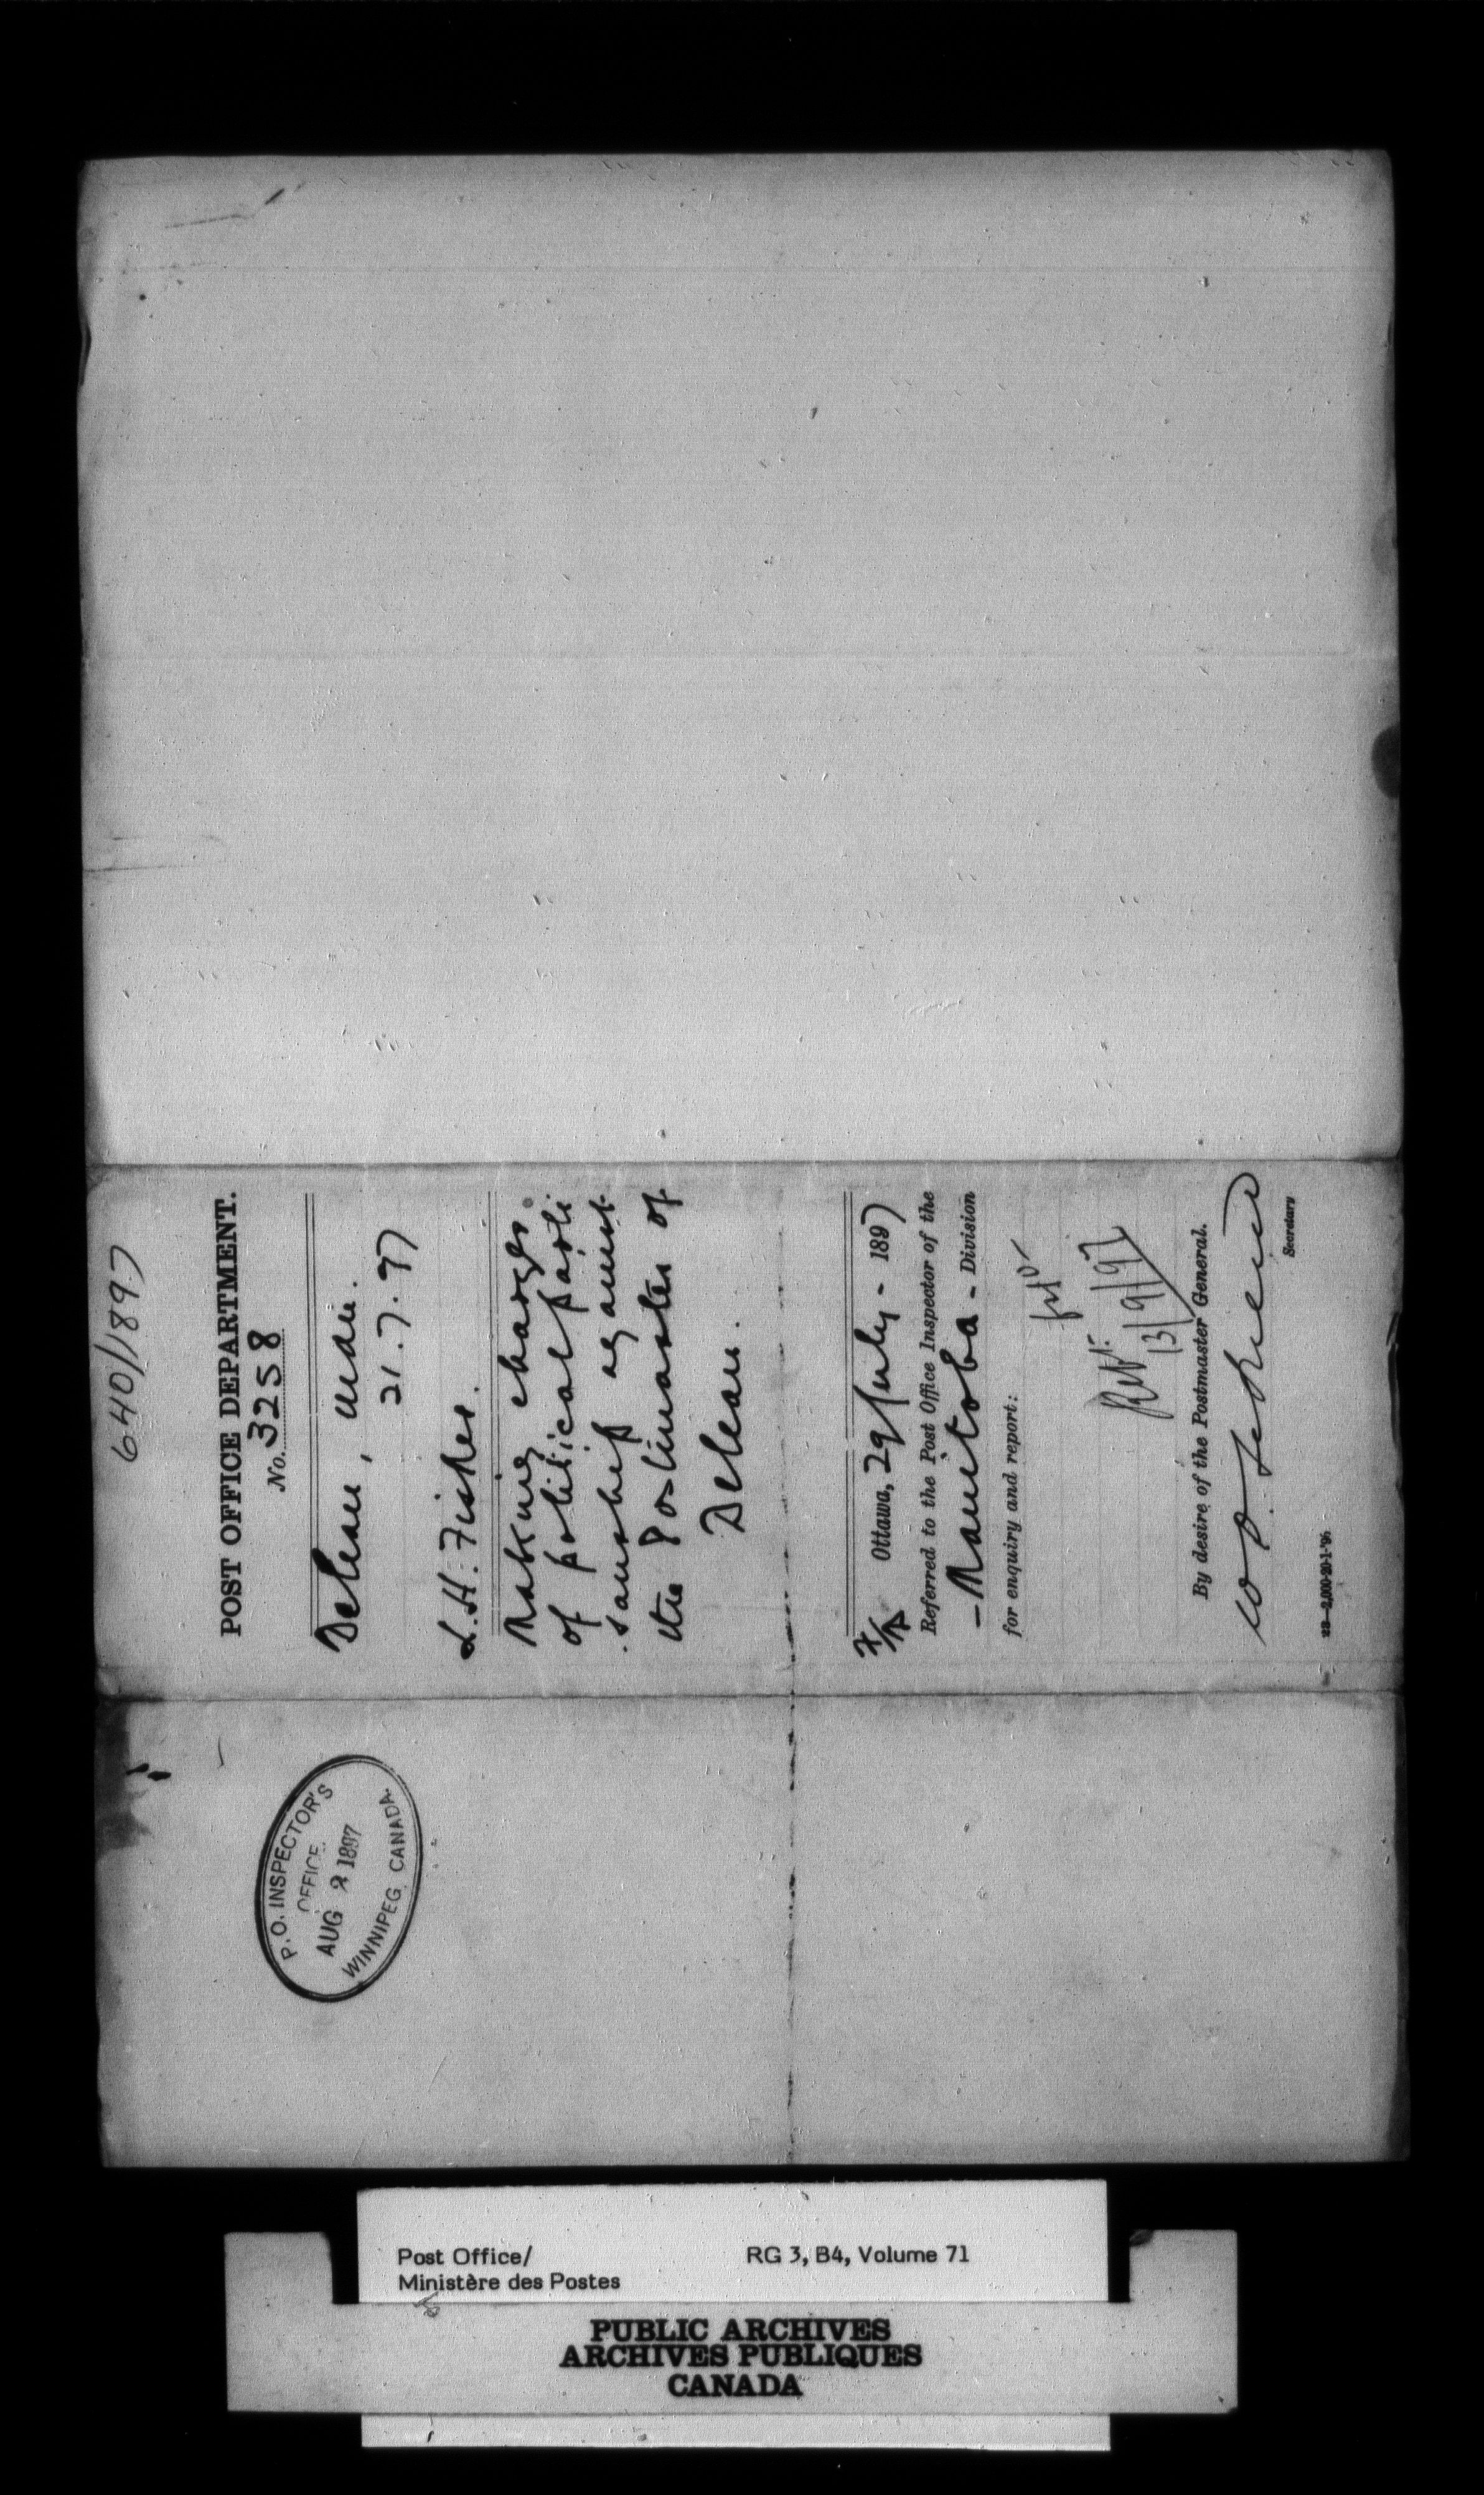 640/1897
POST OFFICE DEPARTMENT.
No. 3258
Deleau, Man.
21.7.97
L.H. Fisher.
Making charges
of political parti
sanship against
the Postmaster of
Deleau.
Ottawa, 29 July - 1897
Referred to the Post Office Inspector of the
- Manitoba - Division
for enquiry and report:
13/9/97
By desire of the Postmaster General.
Secretary
P.O. INSPECTOR'S
OFFICE
AUG 2 1897
WINNIPEG, CANADA.
Post Office/
Ministère des Postes
RG 3, B4, Volume 71
PUBLIC ARCHIVES
ARCHIVES PUBLIQUES
CANADA